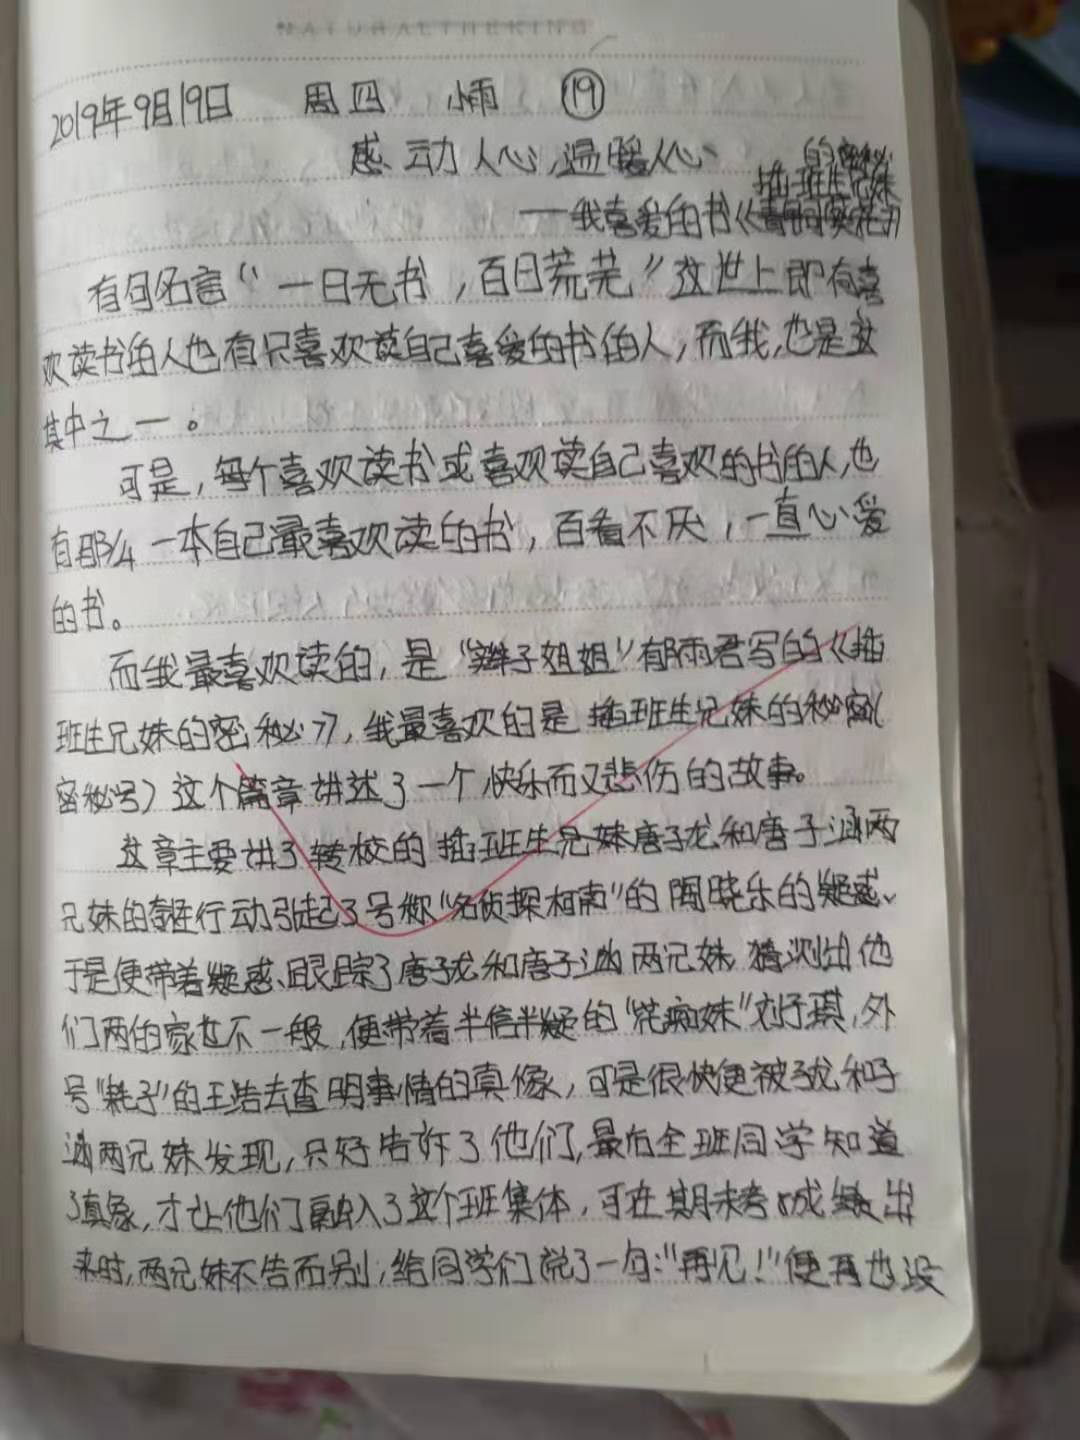 NATURALTHEKING
2019年9月19日 周四 小雨 ⑲
感动人心,温暖人心
的密秘
插班生兄妹
——我喜爱的书《
有句名言“一日无书，百日荒芜”这世上即有喜
欢读书的人也有只喜欢读自己喜爱的书的人，而我，也是这
其中之一。
可是，每个喜欢读书或喜欢读自己喜欢的书的人，也
有那么一本自己最喜欢读的书，百看不厌，一直心爱
的书。
而我最喜欢读的，是“辫子姐姐”郁雨君写的《插
班生兄妹的密秘》，我最喜欢的是插班生兄妹的秘密(
密秘号）这个篇章讲述了一个快乐而又悲伤的故事。
这章主要讲了转校的插班生兄妹唐子龙和唐子涵两
兄妹的行动引起了号称“名侦探柯南”的陶晓乐的疑惑、
于是便带着疑惑、跟踪了唐子龙和唐子涵两兄妹猜测出他
们两的家也不一般，便带着半信半疑的“花痴妹”刘子琪，外
号“耗子”的王浩去查明事情的真像，可是很快便被子龙和子
涵两兄妹发现，只好告诉了他们，最后全班同学知道
了真象，才让他们融入了这个班集体，可在期未考成绩出
来时，两兄妹不告而别，给同学们说了一句：“再见！”便再也没